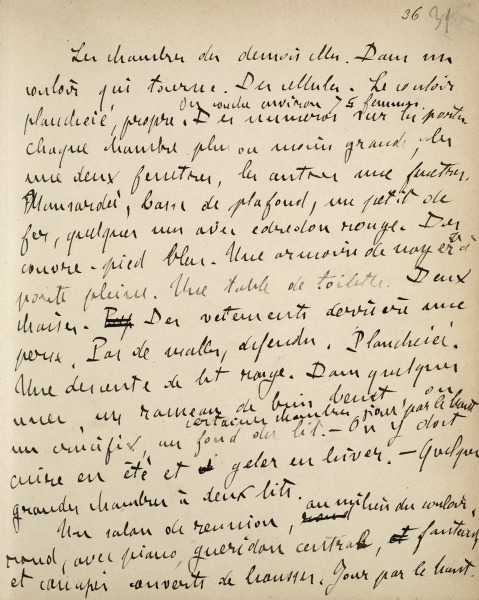 36 31
Les chambres des demoiselles. Dans un
couloir qui tourne. Des cellules. Le couloir
On couche environ 75 femmes.
planchéié, propre. Des numéros sur les portes
chaque chambre plus ou moins grande, les
une deux fenetres, les autres une fenetre.
Mansardée, basse de plafond, un petit lit de
fer, quelques uns avec edredon rouge. Des
couvre-pied bleu. Une armoire de noyer à
porte pleine. Une table de toilette. Deux
chaises. Des vetements derrière une
perse. Pas de malles, defendu. Planchéié.
Une descente de lit rouge. Dans quelques
unes, un rameau de buis benit ou
un crucifix, au fond du lit. — On y doit
certaines chambres jour par le haut
cuire en été et geler en hiver. — Quelques
grandes chambres à deux lits.
Un salon de reunion, au milieu du couloir,
rond, avec piano, gueridon central, fauteuils
et canapés couverts de housses. Jour par le haut.